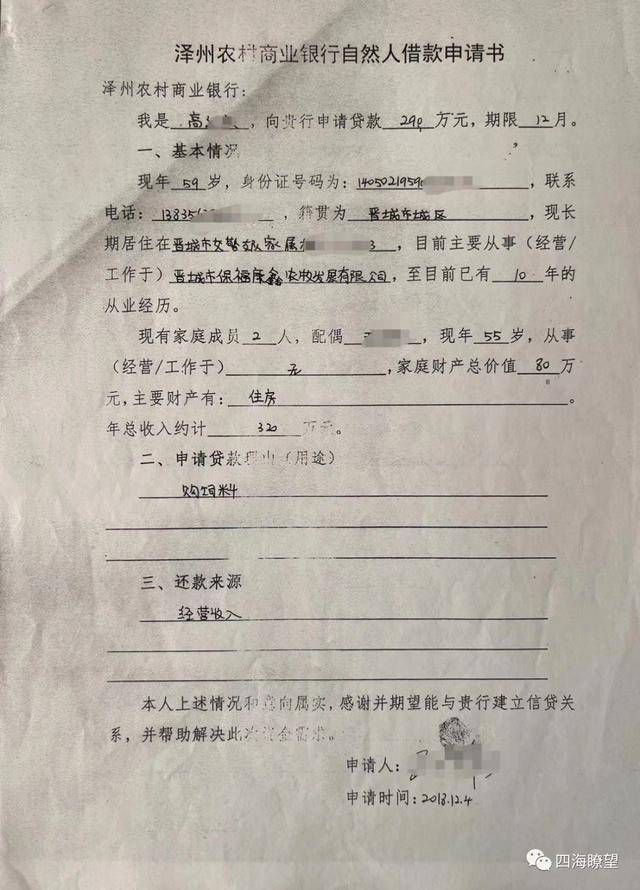 泽州农村商业银行自然人借款申请书
泽州农村商业银行:
我是 高 ,向贵行申请贷款 290 万元,期限 12 月。
一、基本情况
现年 59 岁,身份证号码为: 1405021959 ,联系
电话: 138356 ,籍贯为 晋城市城区 ,现长
期居住在晋城市交警队家属 3 ,目前主要从事(经营/
工作于)晋城市保福康鑫农牧发展有限公司,至目前已有 10 年的
从业经历。
现有家庭成员 2 人,配偶 ,现年 55 岁,从事
(经营/工作于) 无 ,家庭财产总价值 80 万
元,主要财产有: 住房 。
年总收入约计 320 万元。
二、申请贷款理由(用途)
购饲料
三、还款来源
经营收入
本人上述情况和意向属实,感谢并期望能与贵行建立信贷关
系,并帮助解决此次资金需求。
申请人:
申请时间:2018.12.4
四海瞭望